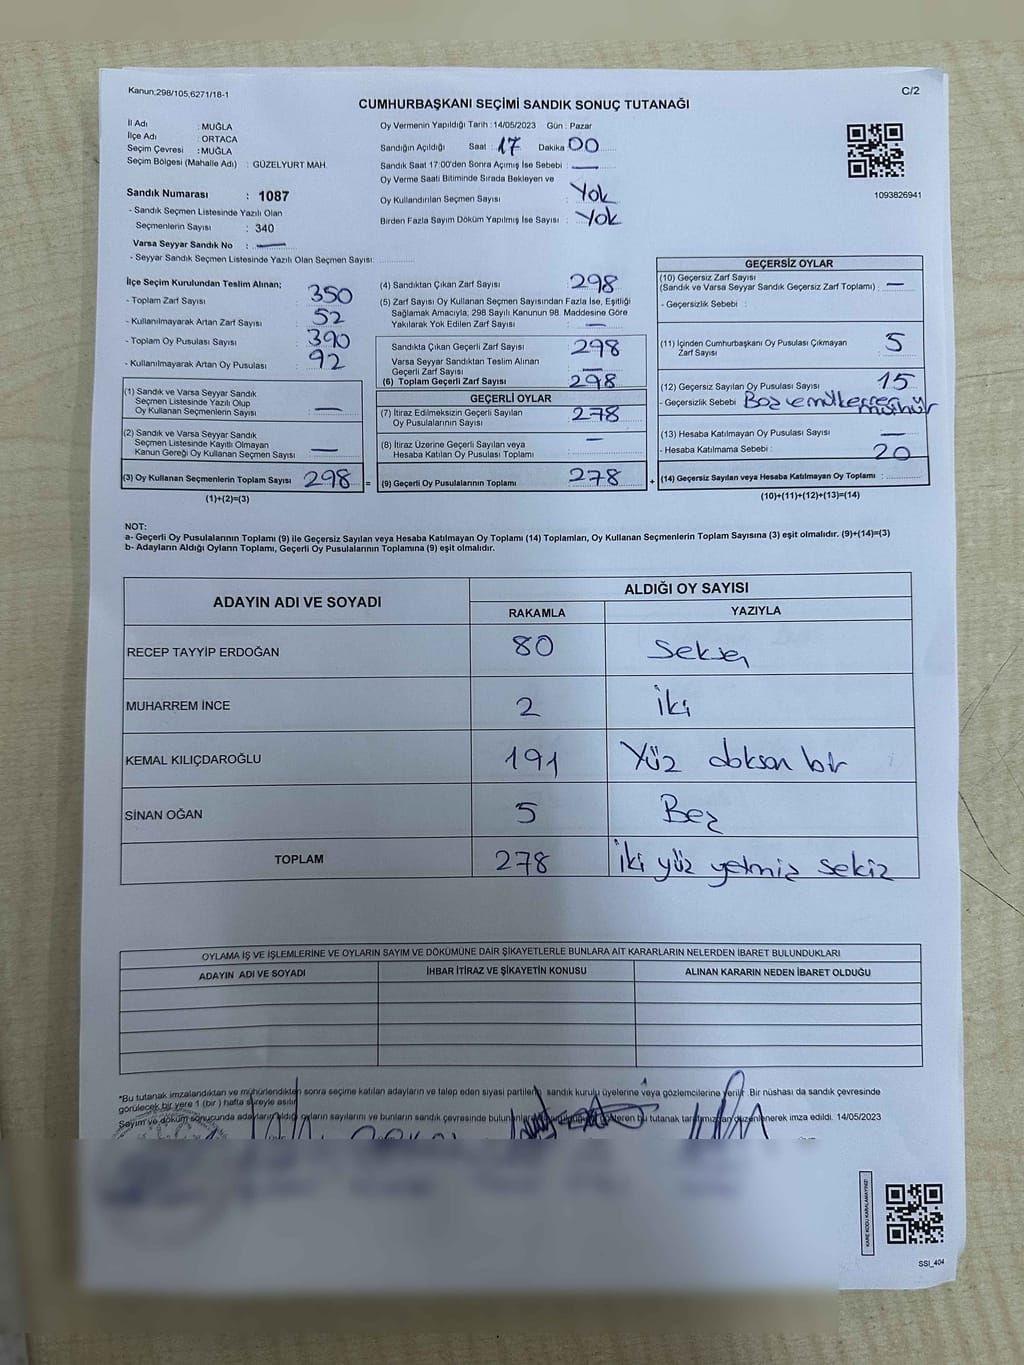 Kanun,298/105,6271/18-1
C/2
CUMHURBAŞKANI SEÇİMİ SANDIK SONUÇ TUTANAĞI
İl Adı : MUĞLA
İlçe Adı : ORTACA
Seçim Çevresi : MUĞLA
Seçim Bölgesi (Mahalle Adı) : GÜZELYURT MAH.
Sandık Numarası : 1087
- Sandık Seçmen Listesinde Yazılı Olan
Seçmenlerin Sayısı : 340
Varsa Seyyar Sandık No : —
- Seyyar Sandık Seçmen Listesinde Yazılı Olan Seçmen Sayısı:
Oy Vermenin Yapıldığı Tarih : 14/05/2023 Gün : Pazar
Sandığın Açıldığı Saat : 17 Dakika 00
Sandık Saat 17:00'den Sonra Açımış İse Sebebi : —
Oy Verme Saati Bitiminde Sırada Bekleyen ve
Oy Kullandırılan Seçmen Sayısı : Yok
Birden Fazla Sayım Döküm Yapılmış İse Sayısı : Yok
1093826941
İlçe Seçim Kurulundan Teslim Alınan;
- Toplam Zarf Sayısı : 350
- Kullanılmayarak Artan Zarf Sayısı : 52
- Toplam Oy Pusulası Sayısı : 390
- Kullanılmayarak Artan Oy Pusulası : 92
(1) Sandık ve Varsa Seyyar Sandık
Seçmen Listesinde Yazılı Olup
Oy Kullanan Seçmenlerin Sayısı —
(2) Sandık ve Varsa Seyyar Sandık
Seçmen Listesinde Kayıtlı Olmayan
Kanun Gereği Oy Kullanan Seçmen Sayısı —
(3) Oy Kullanan Seçmenlerin Toplam Sayısı 298 =
(1)+(2)=(3)
(4) Sandıktan Çıkan Zarf Sayısı : 298
(5) Zarf Sayısı Oy Kullanan Seçmen Sayısından Fazla İse, Eşitliği
Sağlamak Amacıyla, 298 Sayılı Kanunun 98. Maddesine Göre
Yakılarak Yok Edilen Zarf Sayısı : —
Sandıkta Çıkan Geçerli Zarf Sayısı 298
Varsa Seyyar Sandıktan Teslim Alınan
Geçerli Zarf Sayısı : —
(6) Toplam Geçerli Zarf Sayısı 298
GEÇERLİ OYLAR
(7) İtiraz Edilmeksizin Geçerli Sayılan
Oy Pusulalarının Sayısı 278
(8) İtiraz Üzerine Geçerli Sayılan veya
Hesaba Katılan Oy Pusulası Toplamı —
(9) Geçerli Oy Pusulalarının Toplamı 278 +
GEÇERSİZ OYLAR
(10) Geçersiz Zarf Sayısı
(Sandık ve Varsa Seyyar Sandık Geçersiz Zarf Toplamı) : —
- Geçersizlik Sebebi :
(11) İçinden Cumhurbaşkanı Oy Pusulası Çıkmayan
Zarf Sayısı 5
(12) Geçersiz Sayılan Oy Pusulası Sayısı 15
- Geçersizlik Sebebi : mühür
(13) Hesaba Katılmayan Oy Pusulası Sayısı —
- Hesaba Katılmama Sebebi :
(14) Geçersiz Sayılan veya Hesaba Katılmayan Oy Toplamı : 20
(10)+(11)+(12)+(13)=(14)
NOT:
a- Geçerli Oy Pusulalarının Toplamı (9) ile Geçersiz Sayılan veya Hesaba Katılmayan Oy Toplamı (14) Toplamları, Oy Kullanan Seçmenlerin Toplam Sayısına (3) eşit olmalıdır. (9)+(14)=(3)
b- Adayların Aldığı Oyların Toplamı, Geçerli Oy Pusulalarının Toplamına (9) eşit olmalıdır.
ADAYIN ADI VE SOYADI
ALDIĞI OY SAYISI
RAKAMLA YAZIYLA
RECEP TAYYİP ERDOĞAN 80 Seksen
MUHARREM İNCE 2 İki
KEMAL KILIÇDAROĞLU 191 Yüz doksan bir
SİNAN OĞAN 5 Beş
TOPLAM 278 İki yüz yetmiş sekiz
OYLAMA İŞ VE İŞLEMLERİNE VE OYLARIN SAYIM VE DÖKÜMÜNE DAİR ŞİKAYETLERLE BUNLARA AİT KARARLARIN NELERDEN İBARET BULUNDUKLARI
ADAYIN ADI VE SOYADI İHBAR İTİRAZ VE ŞİKAYETİN KONUSU ALINAN KARARIN NEDEN İBARET OLDUĞU
*Bu tutanak imzalandıktan ve mühürlendikten sonra seçime katılan adayların ve talep eden siyasi partilerin, sandık kurulu üyelerine veya gözlemcilerine verilir. Bir nüshası da sandık çevresinde
görülecek bir yere 1 (bir ) hafta süreyle asılır.
Sayım ve döküm sonucunda adayların aldığı oyların sayılarını ve bunların sandık çevresinde bu tutanak tarafımızdan düzenlenerek imza edildi. 14/05/2023
KARE KODU KARALAMAYINIZ!
SSI_404